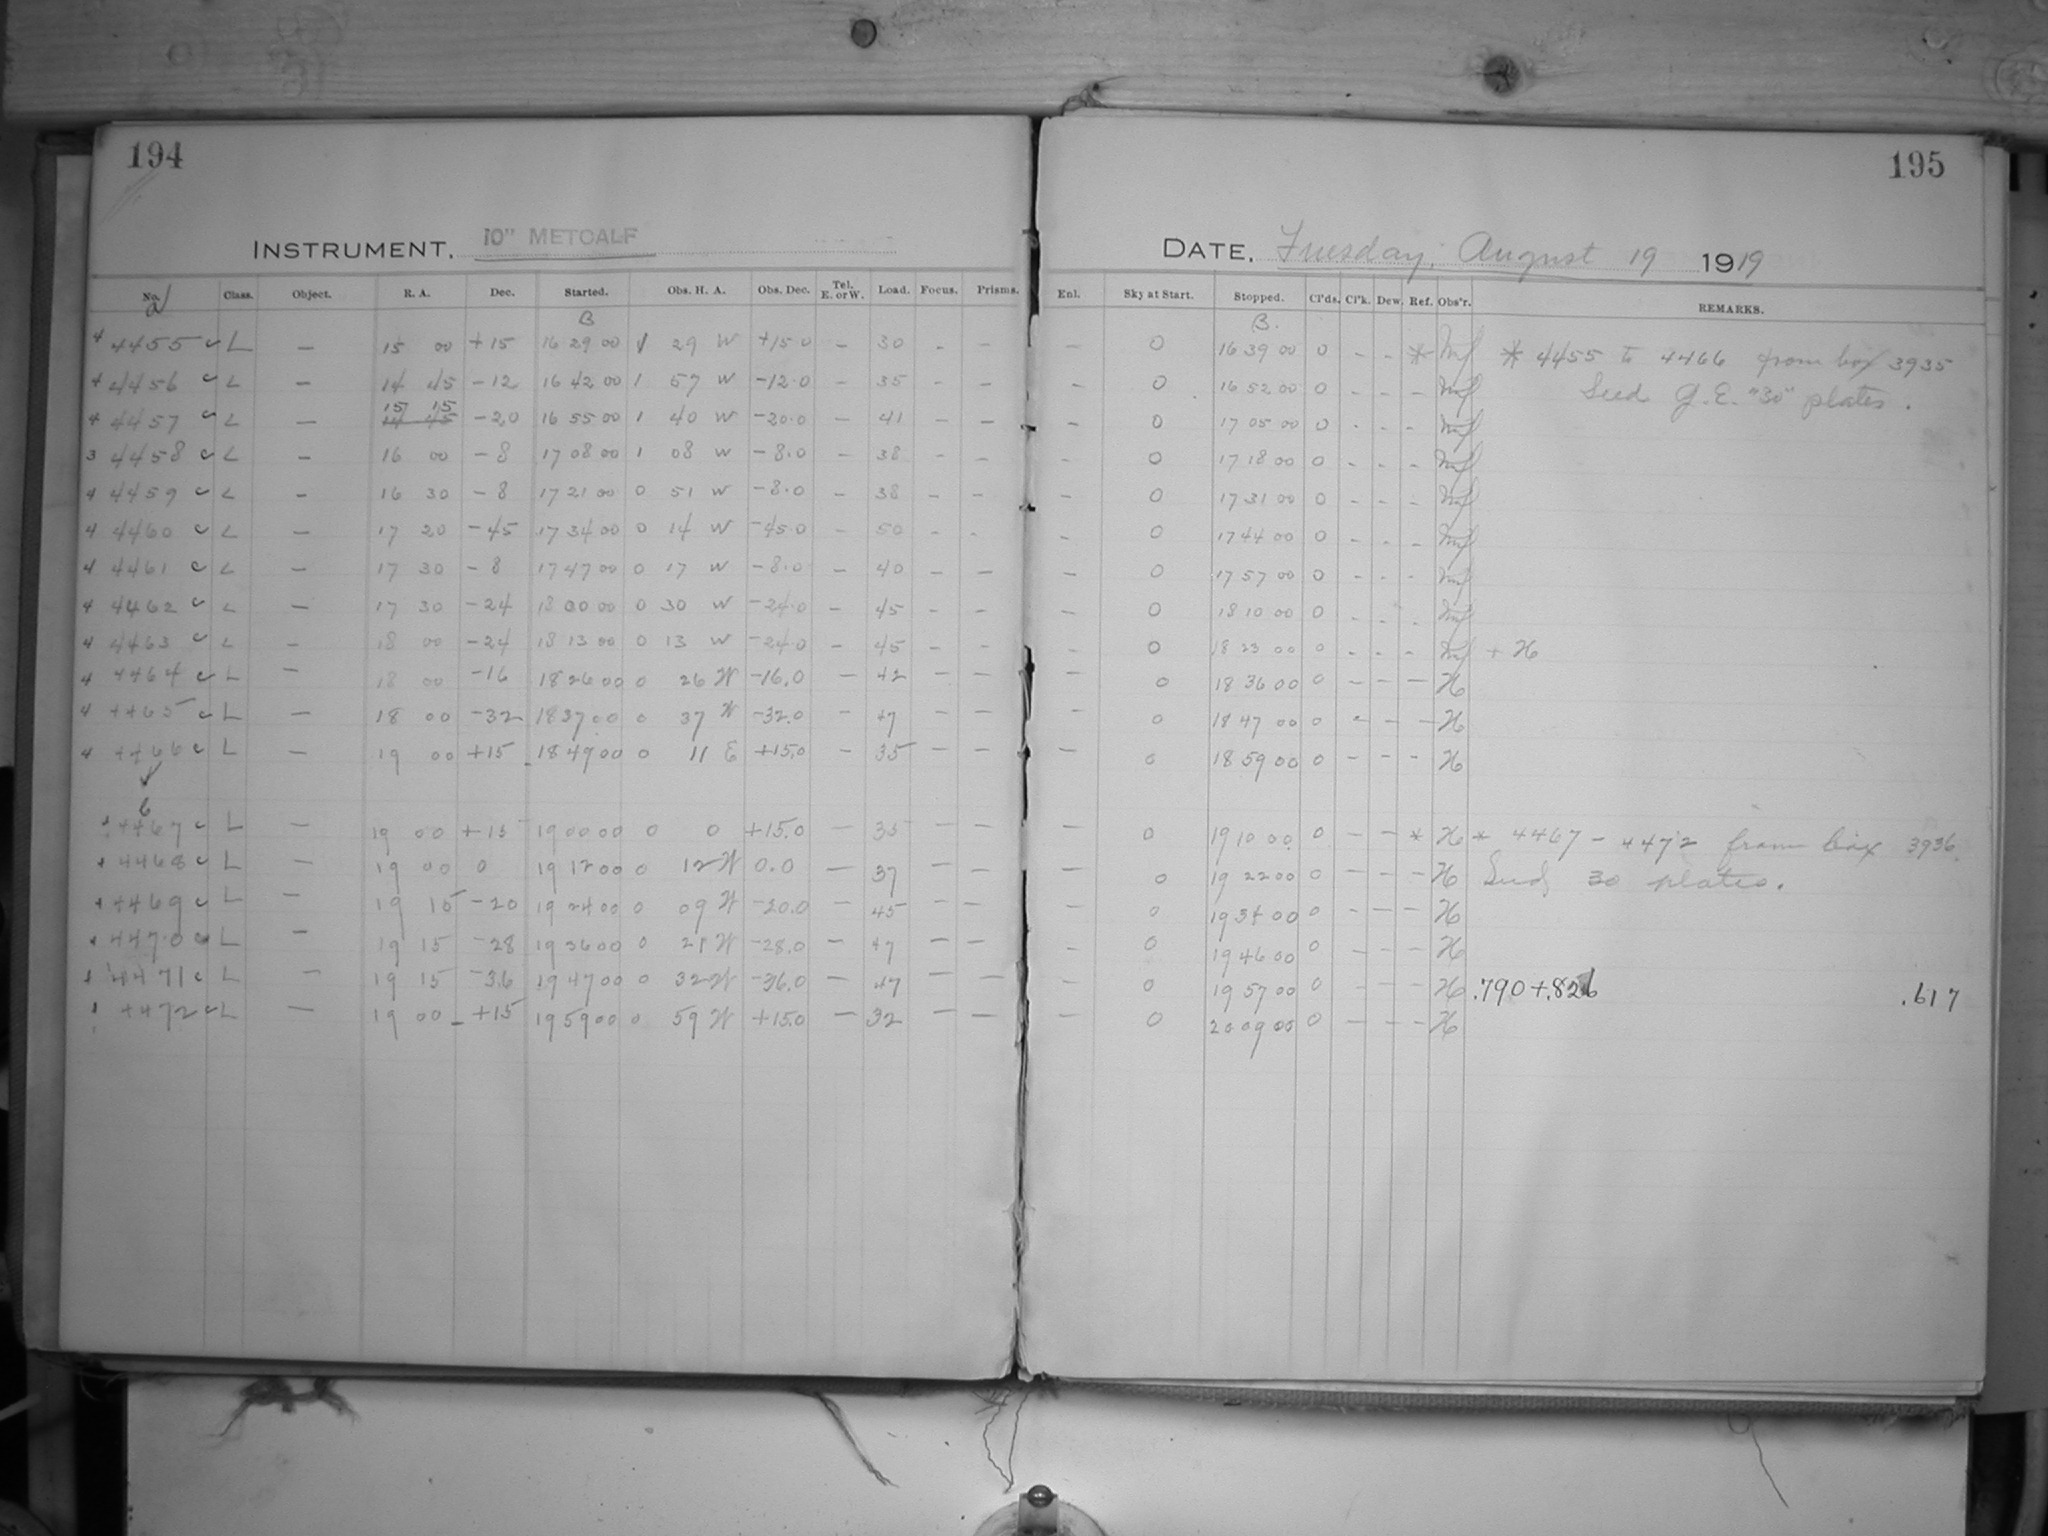 194
INSTRUMENT. 10" METCALF
No. Class. Object. R. A. Dec. Started. Obs. H. A. Obs. Dec. Tel. E. or W. Load. Focus. Prisms.
B
4 4455 L — 15 00 +15 16 29 00 1 29 W +15.0 — 30 - -
4 4456 L — 14 45 -12 16 42 00 1 57 W -12.0 — 35 - -
15 15
4 4457 L — 14 45 -20 16 55 00 1 40 W -20.0 — 41 - -
3 4458 L — 16 00 -8 17 08 00 1 08 W -8.0 - 38 - -
4 4459 L — 16 30 -8 17 21 00 0 51 W -8.0 - 38 - -
4 4460 L — 17 20 -45 17 34 00 0 14 W -45.0 - 50 - -
4 4461 L — 17 30 -8 17 47 00 0 17 W -8.0 — 40 - —
4 4462 L — 17 30 -24 18 00 00 0 30 W -24.0 - 45 - -
4 4463 L — 18 00 -24 18 13 00 0 13 W -24.0 - 45 - -
4 4464 L — 18 00 -16 18 26 00 0 26 W -16.0 — 42 — —
4 4465 L — 18 00 -32 18 37 00 0 37 W -32.0 - 47 — —
4 4466 L — 19 00 +15 18 49 00 0 11 E +15.0 — 35 — —
6
4467 L — 19 00 +15 19 00 00 0 0 +15.0 — 35 — —
4468 L — 19 00 0 19 12 00 0 12 W 0.0 — 37 — —
4469 L — 19 15 -20 19 24 00 0 09 W -20.0 — 45 — —
4470 L — 19 15 -28 19 36 00 0 21 W -28.0 — 47 — —
4471 L — 19 15 -36 19 47 00 0 32 W -36.0 — 47 — —
4472 L — 19 00 +15 19 59 00 0 59 W +15.0 — 32 — —
195
DATE. Tuesday, August 19 1919
Enl. Sky at Start. Stopped. Cl'ds. Cl'k. Dew. Ref. Obs'r. REMARKS.
B.
— 0 16 39 00 0 - - * Mf * 4455 to 4466 from box 3935
— 0 16 52 00 0 - - - Mf Seed G.E. "30" plates.
— 0 17 05 00 0 - - - Mf
— 0 17 18 00 0 - - - Mf
— 0 17 31 00 0 - - - Mf
- 0 17 44 00 0 - - - Mf
— 0 17 57 00 0 - - - Mf
— 0 18 10 00 0 - - - Mf
— 0 18 23 00 0 - - - Mf + H
— 0 18 36 00 0 — — — H
— 0 18 47 00 0 - — — H
— 0 18 59 00 0 — — - H
— 0 19 10 00 0 — — * H * 4467 - 4472 from box 3936.
— 0 19 22 00 0 — — — H Seed 30 plates.
— 0 19 34 00 0 - — — H
— 0 19 46 00 0 - — — H
— 0 19 57 00 0 - — — H .790+.826 .617
— 0 20 09 00 0 — — — H